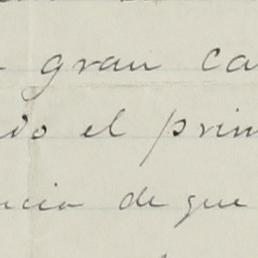 gran ca
do el prim
ncia de que